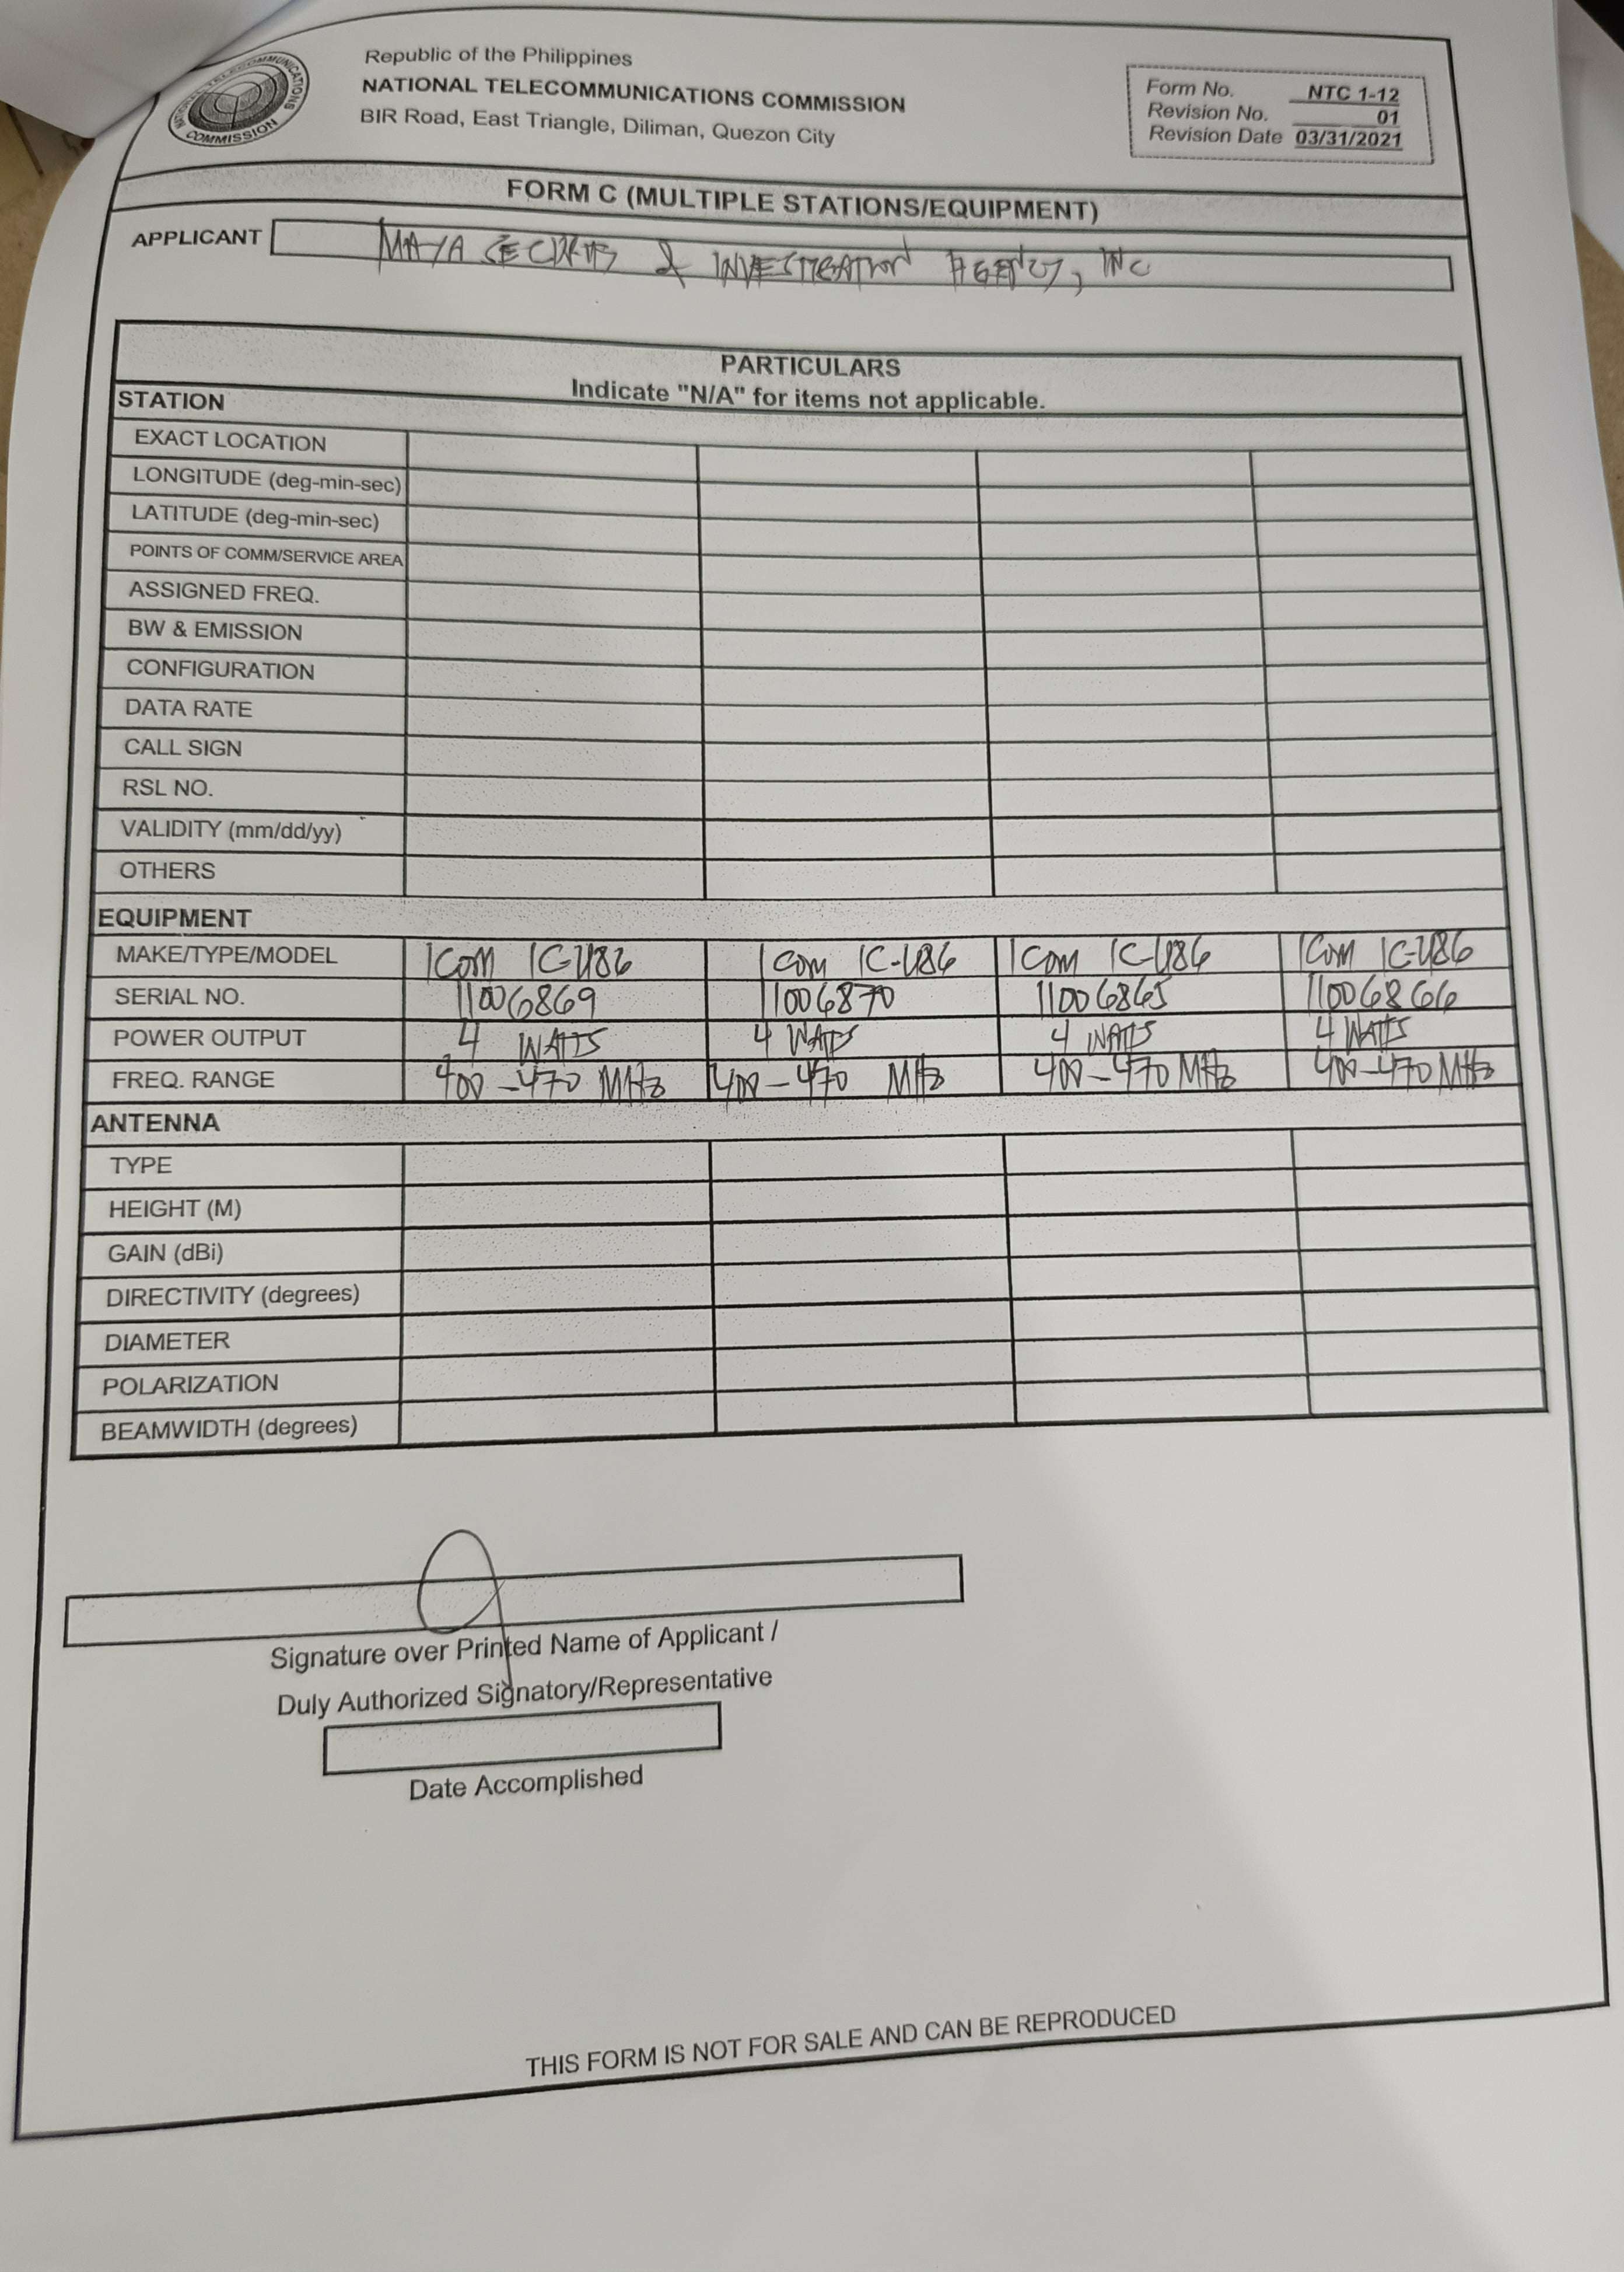 Republic of the Philippines
NATIONAL TELECOMMUNICATIONS COMMISSION
BIR Road, East Triangle, Diliman, Quezon City
NATIONAL TELECOMMUNICATIONS COMMISSION
Form No. NTC 1-12
Revision No. 01
Revision Date 03/31/2021
FORM C (MULTIPLE STATIONS/EQUIPMENT)
APPLICANT & INVESTIGATION AGENCY, INC
PARTICULARS
Indicate "N/A" for items not applicable.
STATION
EXACT LOCATION
LONGITUDE (deg-min-sec)
LATITUDE (deg-min-sec)
POINTS OF COMM/SERVICE AREA
ASSIGNED FREQ.
BW & EMISSION
CONFIGURATION
DATA RATE
CALL SIGN
RSL NO.
VALIDITY (mm/dd/yy)
OTHERS
EQUIPMENT
MAKE/TYPE/MODEL ICOM IC-U86 ICOM IC-U86 ICOM IC-U86 ICOM IC-U86
SERIAL NO. 11006869 11006870 11006865 11006866
POWER OUTPUT 4 WATTS 4 WATTS 4 WATTS 4 WATTS
FREQ. RANGE 400-470 MHz 400-470 MHz 400-470 MHz 400-470 MHz
ANTENNA
TYPE
HEIGHT (M)
GAIN (dBi)
DIRECTIVITY (degrees)
DIAMETER
POLARIZATION
BEAMWIDTH (degrees)
Signature over Printed Name of Applicant /
Duly Authorized Signatory/Representative
Date Accomplished
THIS FORM IS NOT FOR SALE AND CAN BE REPRODUCED